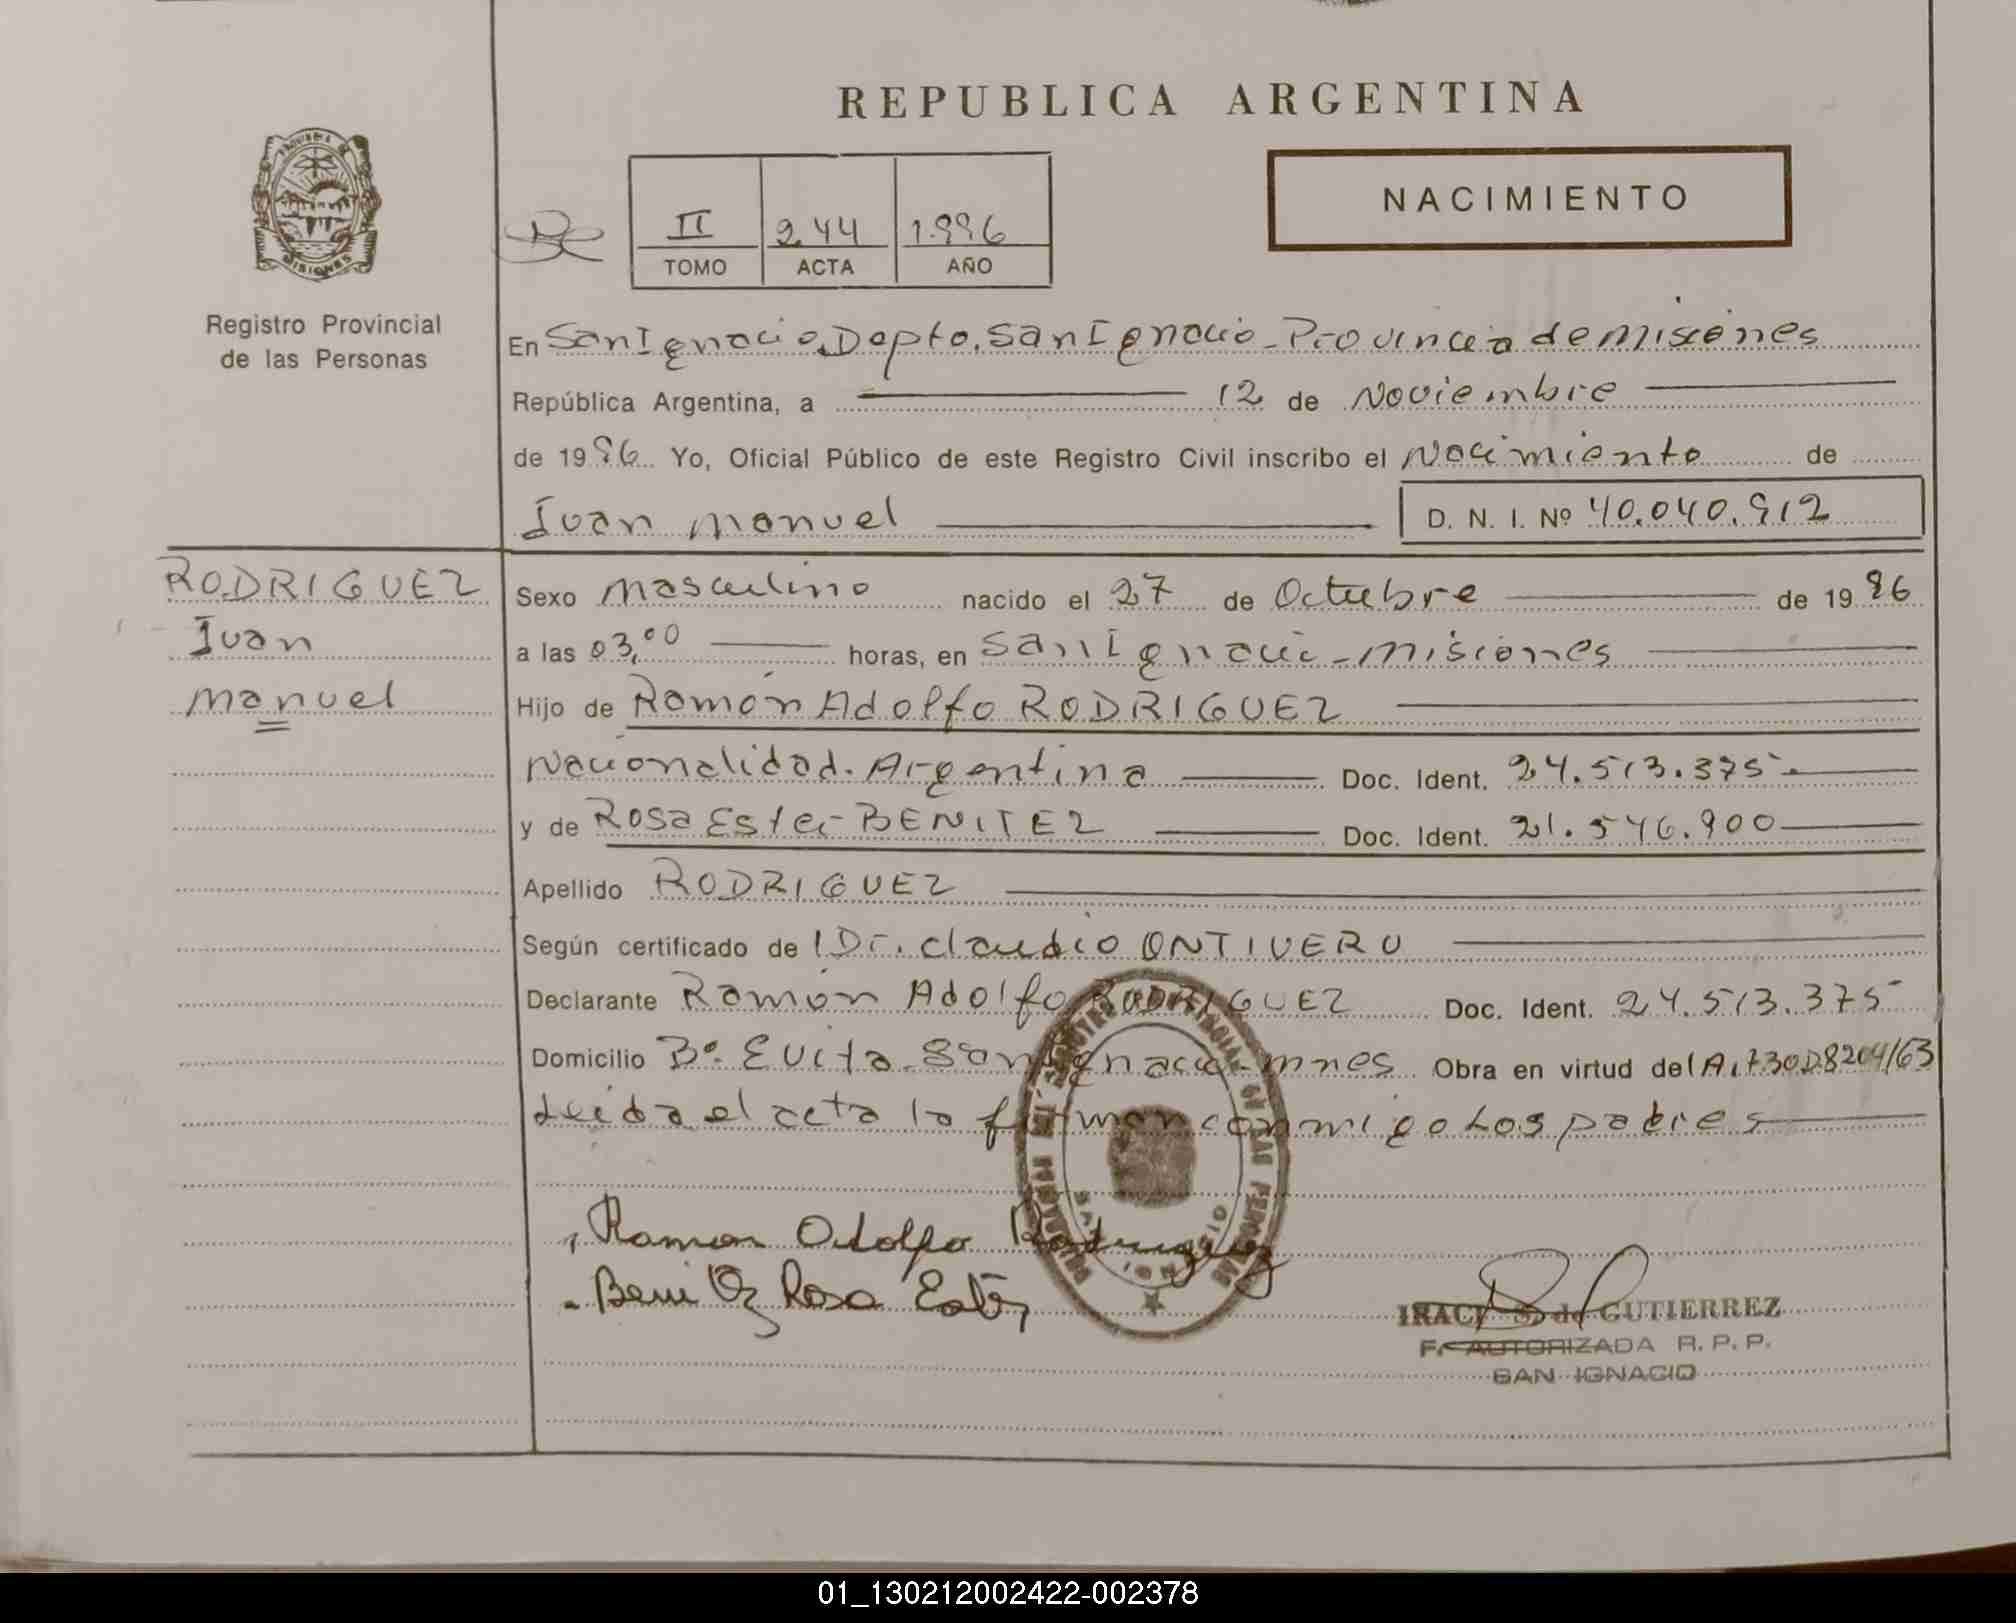 REPUBLICA ARGENTINA
NACIMIENTO
II 244 1.996
TOMO ACTA AÑO
PROVINCIA DE
MISIONES
Registro Provincial
de las Personas
En San Ignacio, Depto. San Ignacio - Provincia de Misiones
República Argentina, a 12 de Noviembre
de 1996 Yo, Oficial Público de este Registro Civil inscribo el Nacimiento de
Juan Manuel D. N. I. Nº 40.040.912
RODRIGUEZ
Juan
Manuel
Sexo Masculino nacido el 27 de Octubre de 1996
a las 03,00 horas, en San Ignacio - Misiones
Hijo de Ramón Adolfo RODRIGUEZ
Nacionalidad. Argentina Doc. Ident. 24.513.375
y de Rosa Ester BENITEZ Doc. Ident. 21.546.900
Apellido RODRIGUEZ
Según certificado de Dr. Claudio ONTIVERO
Declarante Ramón Adolfo RODRIGUEZ Doc. Ident. 24.513.375
Domicilio Bº Evita - San Ignacio - Mnes Obra en virtud del A, 730D8204/63
Leida el acta la firman conmigo Los padres
Ramon Adolfo Rodriguez
Benitez Rosa Ester
IRACI S. de GUTIERREZ
F. AUTORIZADA R. P. P.
SAN IGNACIO
01_130212002422-002378